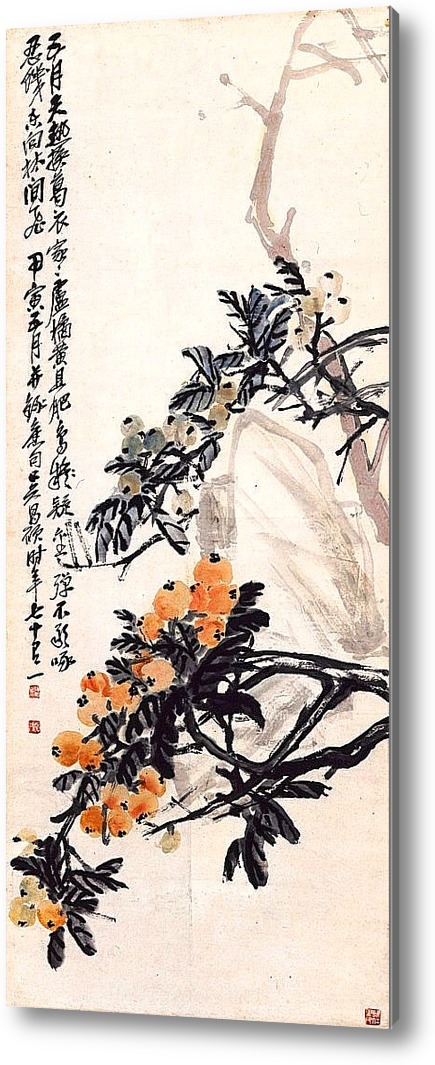 五月天熱換葛衣家〻盧橘黃且肥鳥疑金彈不敢啄
忍饑東向林間飛 甲寅五月并錄舊句 吳昌碩時年七十有一